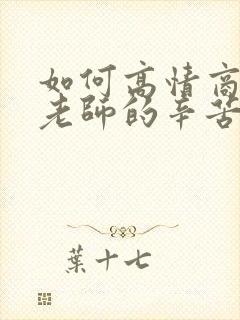 如何高情商
老師的辛苦
葉十七